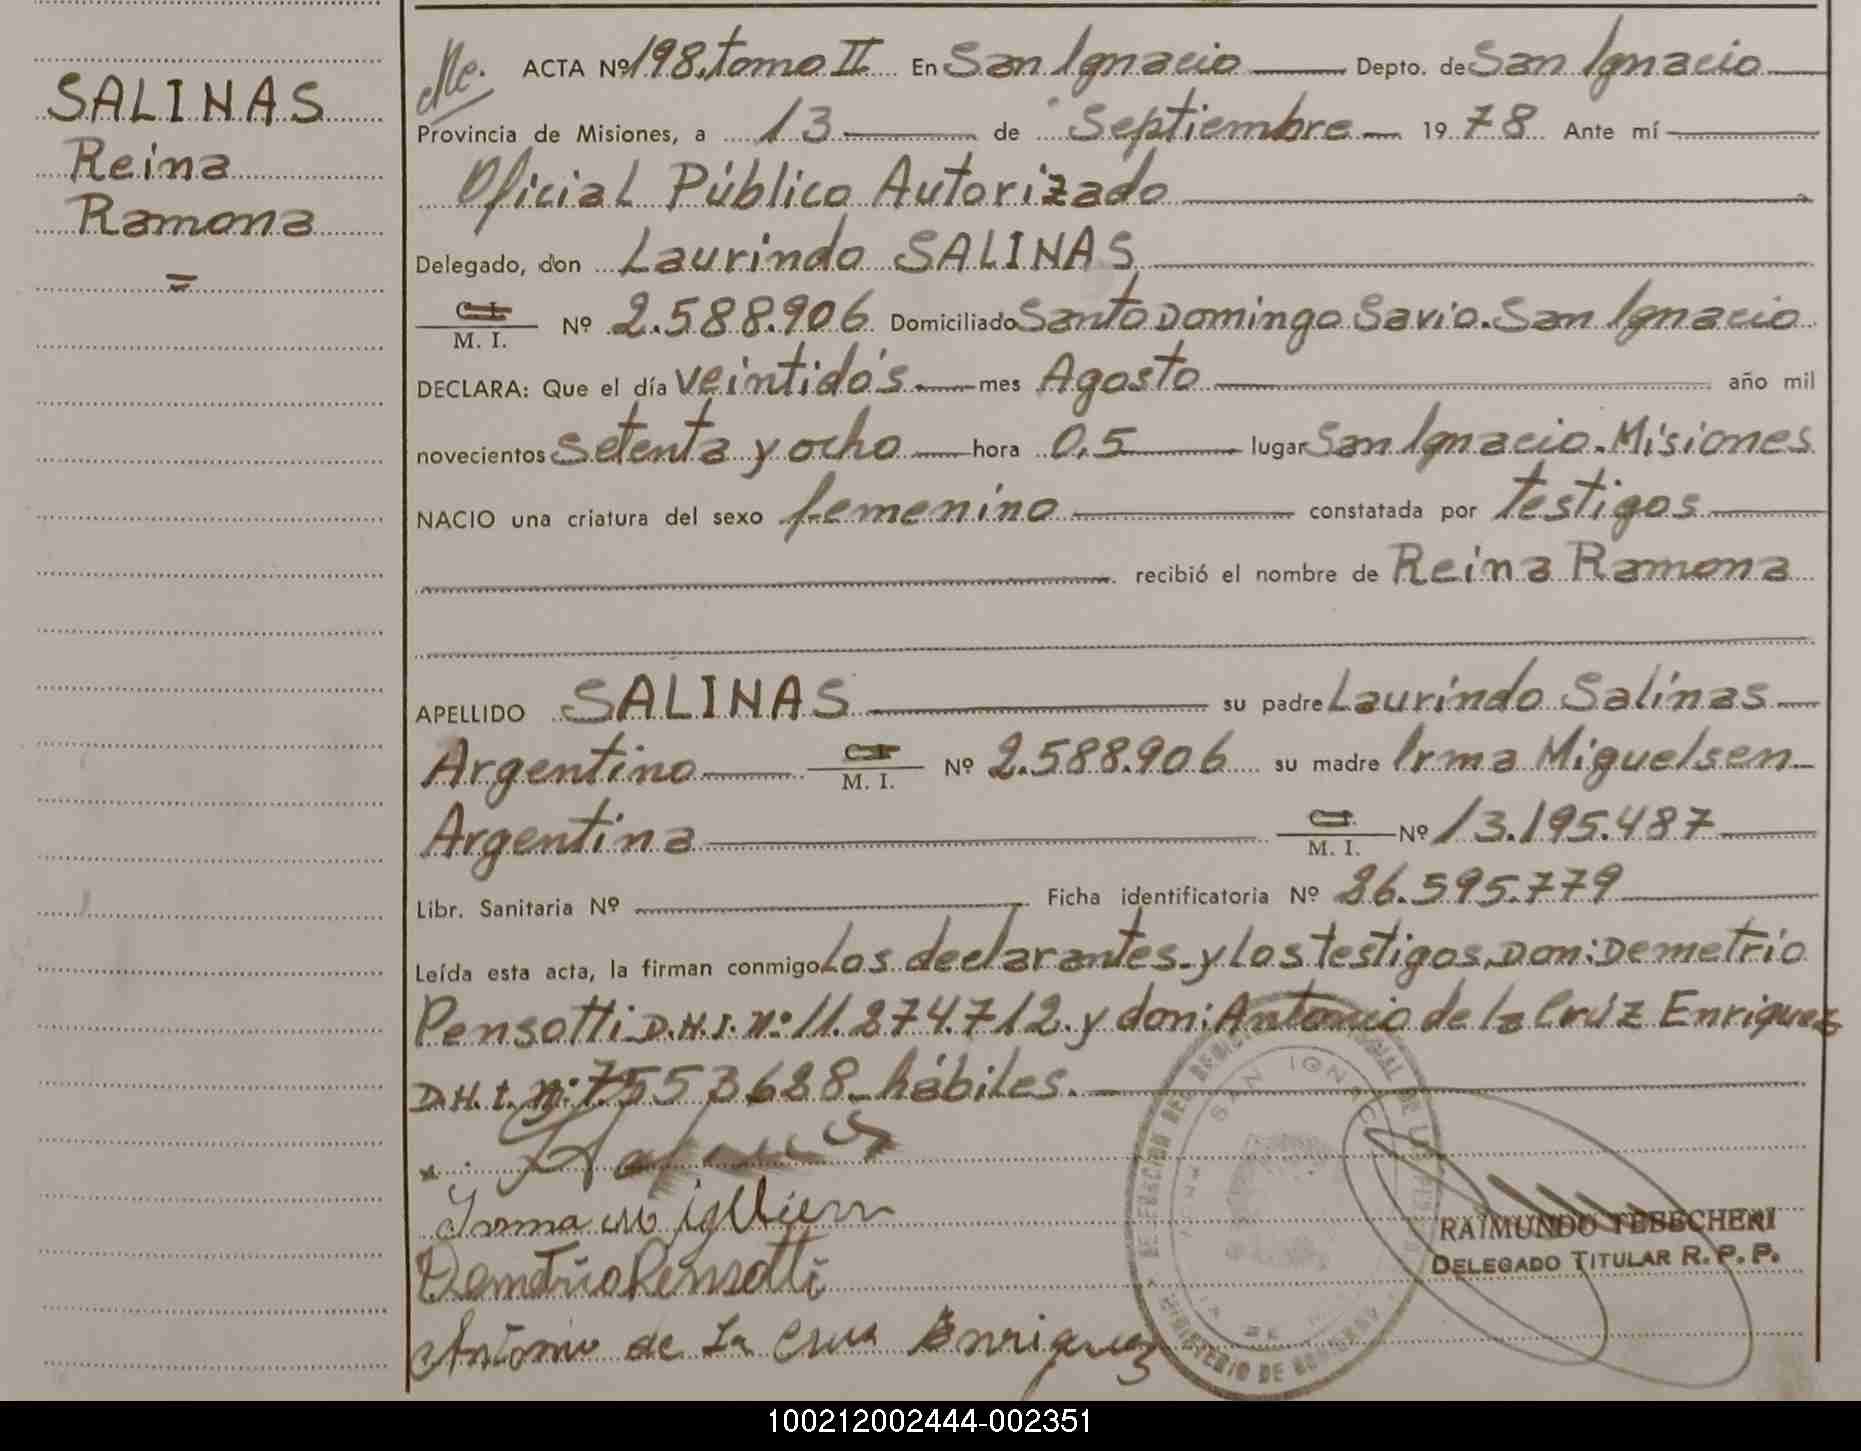 SALINAS
Reina
Ramona
=
ACTA Nº 198, tomo II En San Ignacio Depto. de San Ignacio
Provincia de Misiones, a 13 de Septiembre 19 78 Ante mí
Oficial Público Autorizado
Delegado, don Laurindo SALINAS
C. I.
M. I. Nº 2.588.906 Domiciliado Santo Domingo Savio. San Ignacio
DECLARA: Que el día veintidós mes Agosto año mil
novecientos setenta y ocho hora 0,5 lugar San Ignacio. Misiones
NACIO una criatura del sexo femenino constatada por testigos
recibió el nombre de Reina Ramona
APELLIDO SALINAS su padre Laurindo Salinas
Argentino C. I. M. I. Nº 2.588.906 su madre Irma Miguelsen
Argentina C. I. M. I. Nº 13.195.487
Libr. Sanitaria Nº Ficha identificatoria Nº 26.595.779
Leída esta acta, la firman conmigo los declarantes y los testigos, Don: Demetrio
Pensotti D.N.I. Nº 11.274.712. y don: Antonio de la Cruz Enriquez
D.N.I. Nº: 7553628 hábiles.
Irma
Demetrio Pensotti
Antonio de La Cruz Enriquez
SAN IGNACIO
RAIMUNDO TEBECHERI
DELEGADO TITULAR R. P. P.
100212002444-002351